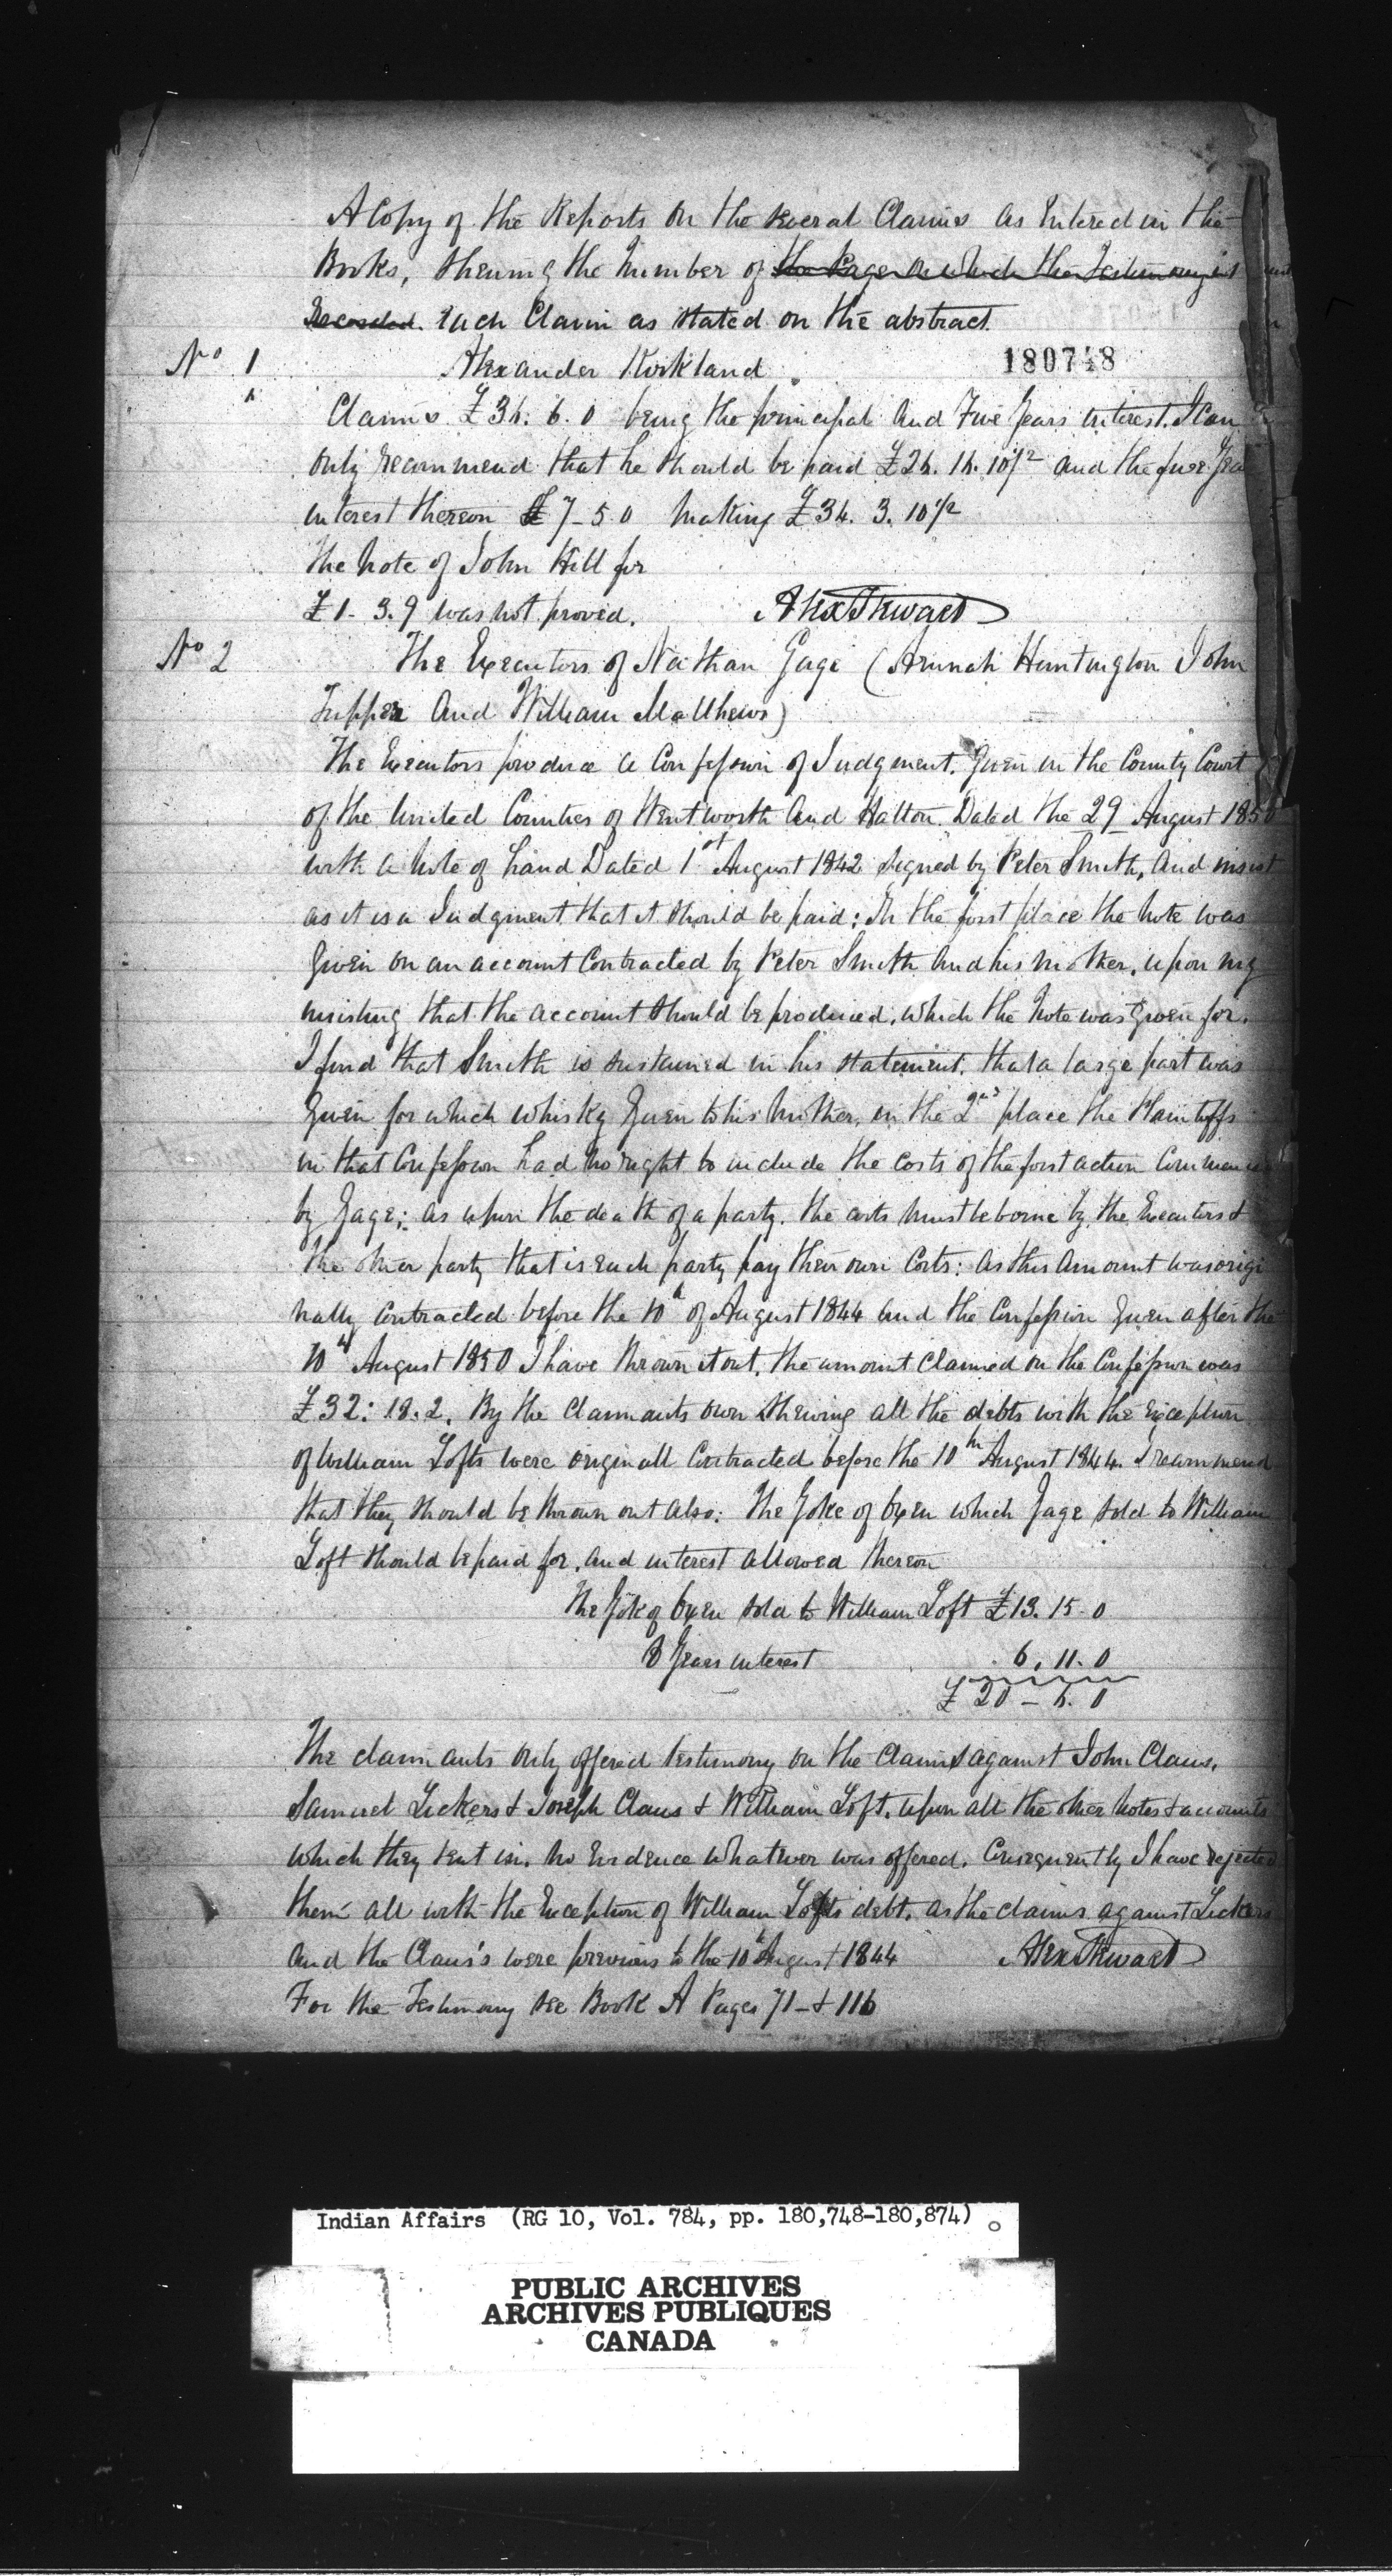 A Copy of the Reports on the several Claims as Entered in the
Books, shewing the Number of the Pages on which the Testimony is
Recorded. Each Claim as stated on the abstract
No 1 Alexander Kirkland 180748
Claims £34. 6. 0 being the principal and Five Years interest. I Can
only recommend that he should be paid 10 1/2 and the five Year
interest thereon £7-5.0 Making £34. 3. 10 1/2
The Note of John Hill for
£1-3.9 was not proved. Alex Stewart
No 2 The Executors of Nathan Gage (Arunah Huntington John
Tupper and William Matthews)
The Executors produce a Confession of Judgment. Given in the County Court
of the United Counties of Wentworth and Halton. Dated the 29 August 1850
with a Note of hand Dated 1st August 1842 signed by Peter Smith, and insist
as it is a Judgment that it should be paid: In the first place the Note was
Given on an account Contracted by Peter Smith and his Mother, upon my
insisting that the account should be produced, which the Note was Given for.
I find that Smith is sustained in his statement, that a large part was
Given for which whisky Given to his Mother, in the 2nd place the Plaintiffs
in that Confession had no right to include the Costs of the first action Commenced
by Gage; as upon the death of a party. the costs must be borne by the Executors &
the other party that is each party pay their own Costs: As this Amount was origi
nally Contracted before the 10th of August 1844 and the Confession Given after the
10th August 1850 I have thrown it out, the amount Claimed on the Confession was
£32: 18. 2. By the Claimants own shewing all the debts with the exception
of William Lofts were originall Contracted before the 10th August 1844. I recommend
that they should be thrown out also: The Yoke of Oxen which Gage sold to William
Loft should be paid for, and interest allowed thereon
The Yok of Oxen sold to William Loft £13. 15. 0
8 Years interest 6. 11. 0
£20 - 6. 0
The claimants only offered testimony on the Claims against John Claus,
Samuel Lickers & Joseph Claus & William Loft. Upon all the other Notes & accounts
which they sent in. No Evidence whatever was offered. Consequently I have rejected
them all with the Exception of William Lofts debt. as the claims against Lickers
and the Claus's were previous to the 10th August 1844 Alex Stewart
For the Testimony see Book A Pages 71-& 116
Indian Affairs (RG 10, Vol. 784, pp. 180,748-180,874)
PUBLIC ARCHIVES
ARCHIVES PUBLIQUES
CANADA